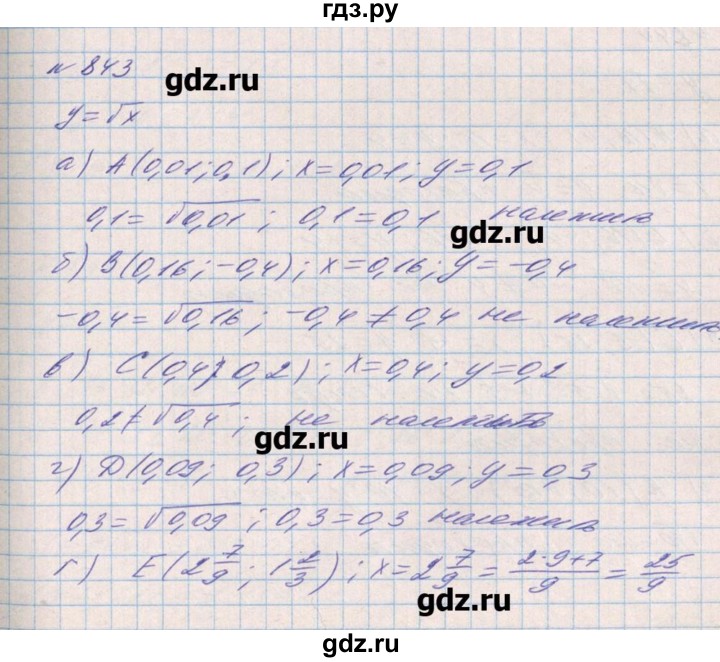 гдз.ру
№ 843
gdz.ru
y=√x
а) A(0,01; 0,1); x=0,01; y=0,1
0,1=√0,01; 0,1=0,1 належить
gdz.ru
б) B(0,16; -0,4); x=0,16; y=-0,4
-0,4=√0,16; -0,4≠0,4 не належить
в) C(0,4; 0,2); x=0,4; y=0,2
0,2≠√0,4; не належить
gdz.ru
г) D(0,09; 0,3); x=0,09; y=0,3
0,3=√0,09; 0,3=0,3 належить
г) E(2 7/9; 1 2/3); x=2 7/9 = (2·9+7)/9 = 25/9
gdz.ru
gdz.ru